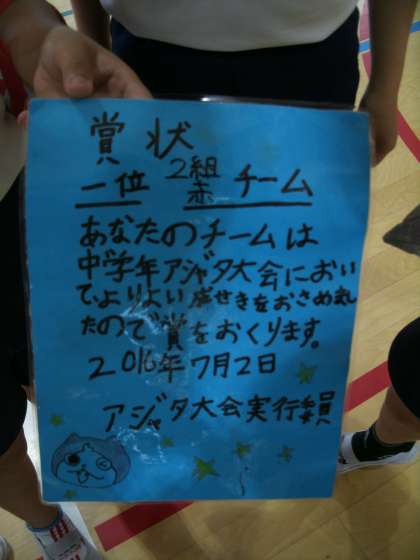 賞状
一位 2組赤 チーム
あなたのチームは
中学年アジャタ大会におい
て、よりよい成せきをおさめました
たので賞をおくります。
2016年7月2日
アジャタ大会実行委員